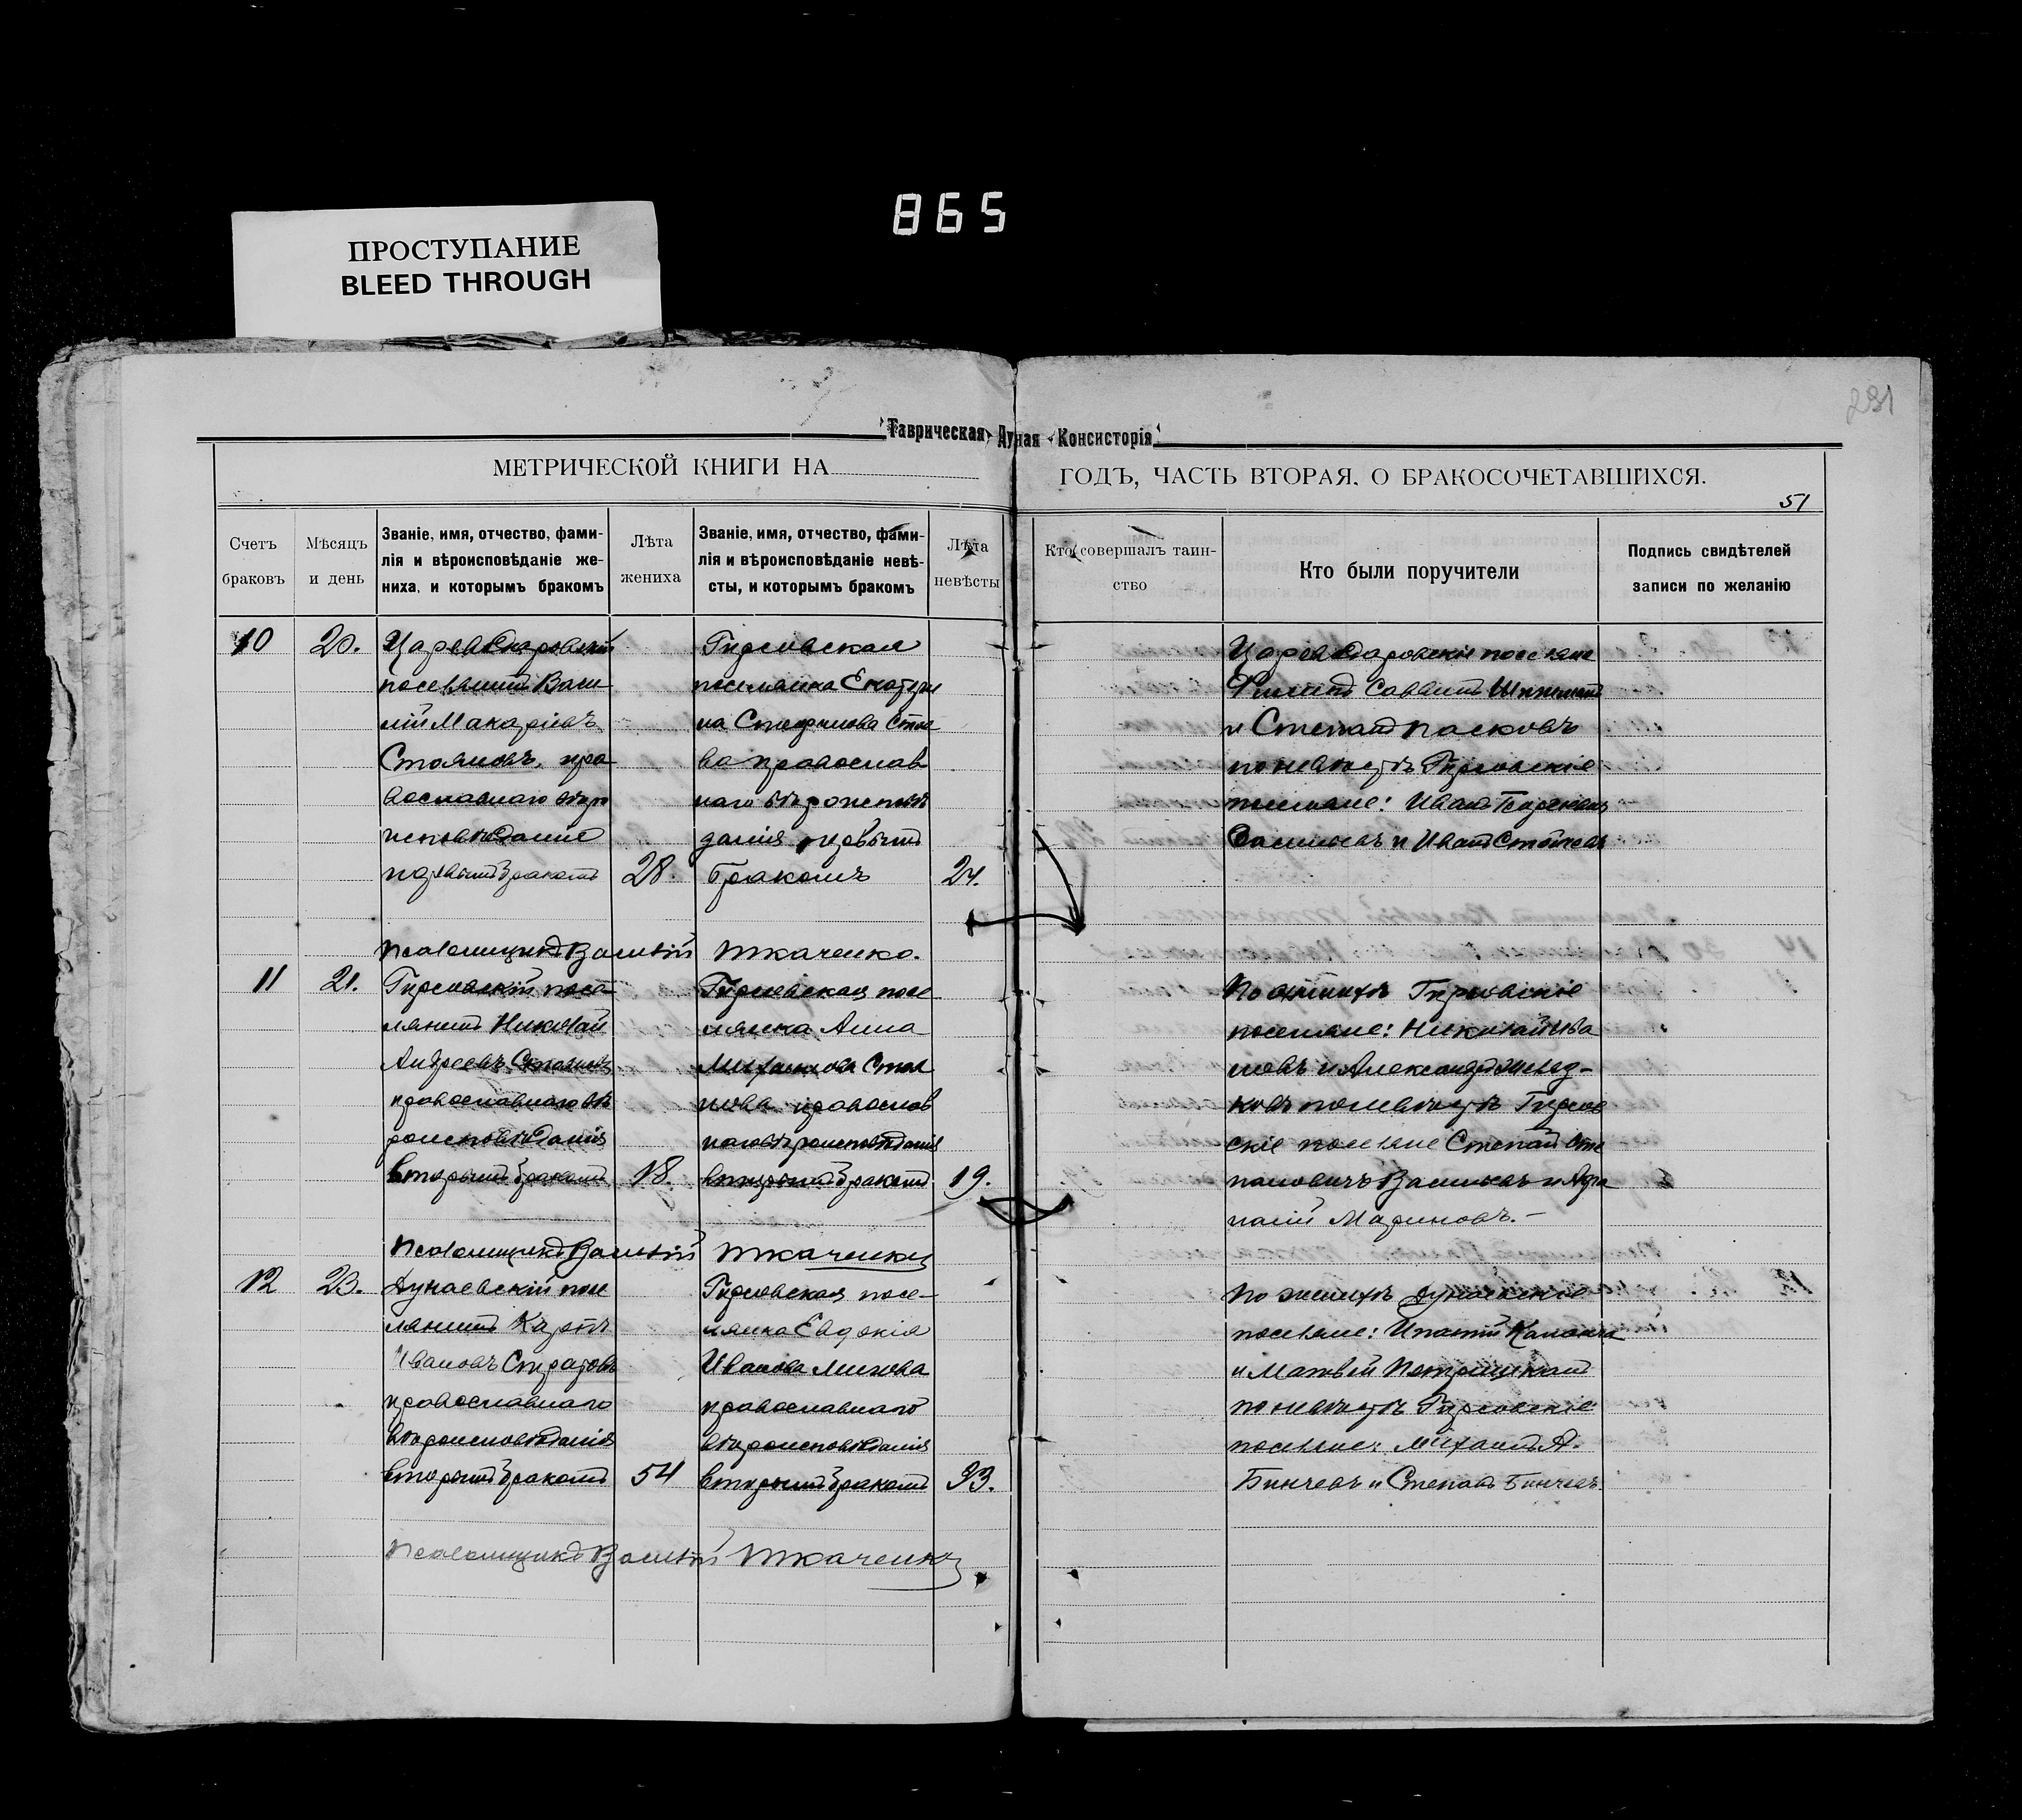 865
ПРОСТУПАНИЕ
BLEED THROUGH
291
Таврическая Дуная Консисторія
МЕТРИЧЕСКОЙ КНИГИ НА
ГОДЪ, ЧАСТЬ ВТОРАЯ, О БРАКОСОЧЕТАВШИХСЯ.
51
Счетъ
браковъ
Мѣсяцъ
и день
Званіе, имя, отчество, фами-
лія и вѣроисповѣданіе же-
ниха, и которымъ бракомъ
Лѣта
жениха
Званіе, имя, отчество, фами-
лія и вѣроисповѣданіе невѣ-
сты, и которымъ бракомъ
Лѣта
невѣсты
Кто совершалъ таин-
ство
Кто были поручители
Подпись свидѣтелей
записи по желанію
10
20.
поселянинъ Васи
лій Макаріевъ
Стояновъ, пра
вославнаго вѣро
исповѣданія
первымъ бракомъ
28.
Гирсовская
поселянка Екатери
на Стефанова Стое
ва православ
наго вѣроисповѣ
данія первымъ
бракомъ
24.
и Степанъ Пасковъ
по невѣстѣ Гирсовскіе
поселяне: Иванъ
Васильевъ и Иванъ
Псаломщикъ Василій Ткаченко.
11
21.
Гирсовскій посе-
лянинъ Николай
Андреевъ Стояновъ
православнаго вѣ
роисповѣданія
вторымъ бракомъ
18.
Гирсовская посе
лянка Анна
Михаилова Стоя
нова православ
наго вѣроисповѣданія
вторымъ бракомъ
19.
По женихѣ Гирсовскіе
поселяне: Николай Ива
новъ и Александръ
ковъ по невѣстѣ Гирсов
скіе поселяне Степанъ Сте
пановичъ Васильевъ и
Мариновъ.-
Псаломщикъ Василій Ткаченко
12
23.
Дунаевскій посе
лянинъ
Ивановъ Стратовъ
православнаго
вѣроисповѣданія
вторымъ бракомъ
54
Гирсовская посе-
лянка Евдокія
Иванова Минова
православнаго
вѣроисповѣданія
вторымъ бракомъ
33.
По женихѣ Дунаевскіе
поселяне: Ипатій
и Матвѣй
по невѣстѣ Гирсовскіе
поселяне: Михаилъ А.
Бинчевъ и Степанъ Бинчевъ.
Псаломщикъ Василій Ткаченко